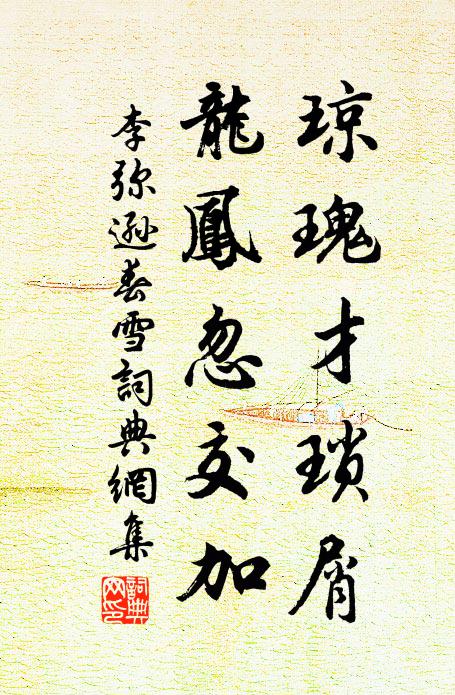 琼瑰才琐屑
龍鳳忽交加
李弥遜春雪詞典網集
詞典
网印